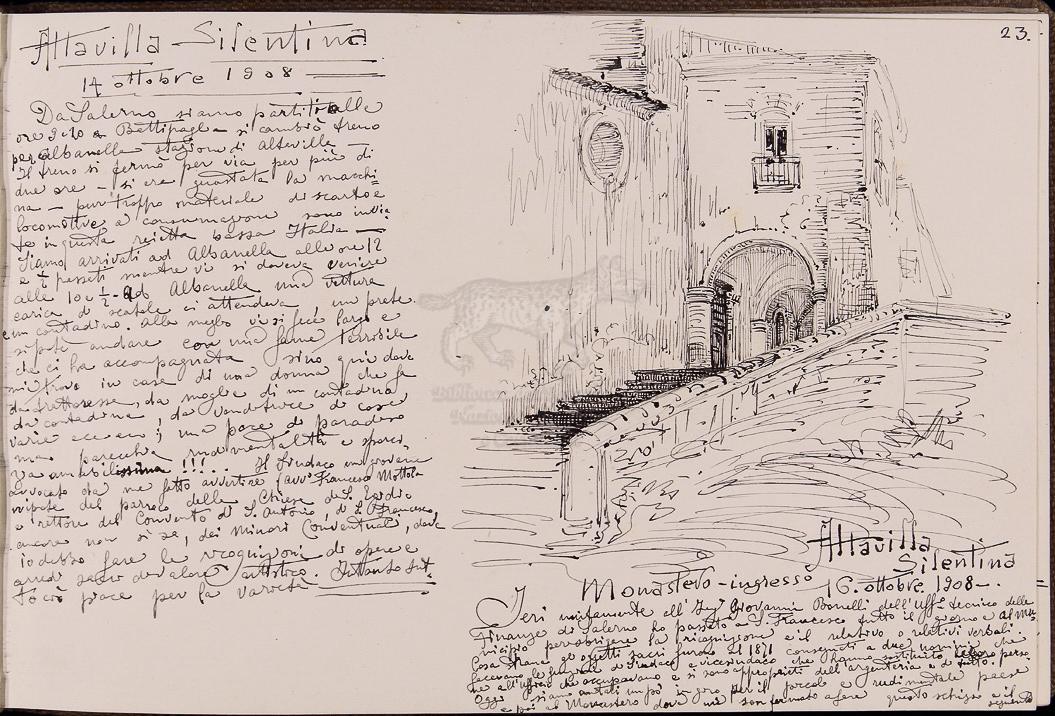 Altavilla Silentina
14 ottobre 1908
Da Salerno siamo partiti alle
ore 9.10 a Battipaglia si cambiò treno
per Albanella stazione di Altavilla
Il treno si fermò per via per più di
due ore – si era guastata la macchi-
na – purtroppo materiale di scarto e
locomotive a consumazione sono invia-
te in questa reietta bassa Italia –
Siamo arrivati ad Albanella alle ore 12
e ½ passati mentre vi si doveva venire
alle 10 e ½ - Ad Albanella una vettura
carica di scatole ci attendeva un prete
e un contadino. Alla meglio vi si fece largo e
si poté andare con una fame terribile
che ci ha accompagnata sino qui dove
mi trovo in casa di una donna che fa
da trattoressa, da moglie di un contadino
da contadina da venditrice di cose
varie ecc ecc; una pace di paradiso
ma parecchia rudimentalità e sporci-
zia amabilissima!!!... Il Sindaco un giovane
avvocato da me fatto avvertire (avv. Francesco Mottola
nipote del parroco della Chiesa di S. Egidio
e rettore del Convento di S. Antonio, di S. Francesco,
ancora non si sa, dei Minori Conventuali, dove
io debbo fare le ricognizioni di opere e
arredi sacri di valore artistico. Intanto tut-
to ciò piace per la varietà
23.
Altavilla
Silentina
Monastero - ingresso 16. ottobre. 1908 -.
Ieri unitamente all'Ing. Giovanni Bonelli dell'Uff. tecnico delle
Finanze di Salerno ho passato a S. Francesco tutto il giorno e al Mu-
nicipio per la ricognizione e il relativo o relativi verbali.
Cosa strana gli oggetti sacri furono nel 1871 consegnati a due uomini che
facevano le funzioni di Sindaco e vicesindaco che hanno sostituito loro perso-
ne all'ufficio che occupavano e si sono appropriati dell'argenteria e di tutto.
Oggi siamo andati un pò in giro per il piccolo e rudimentale paese
e poi al Monastero dove mi son fermato a fare questo schizzo e il
seguente